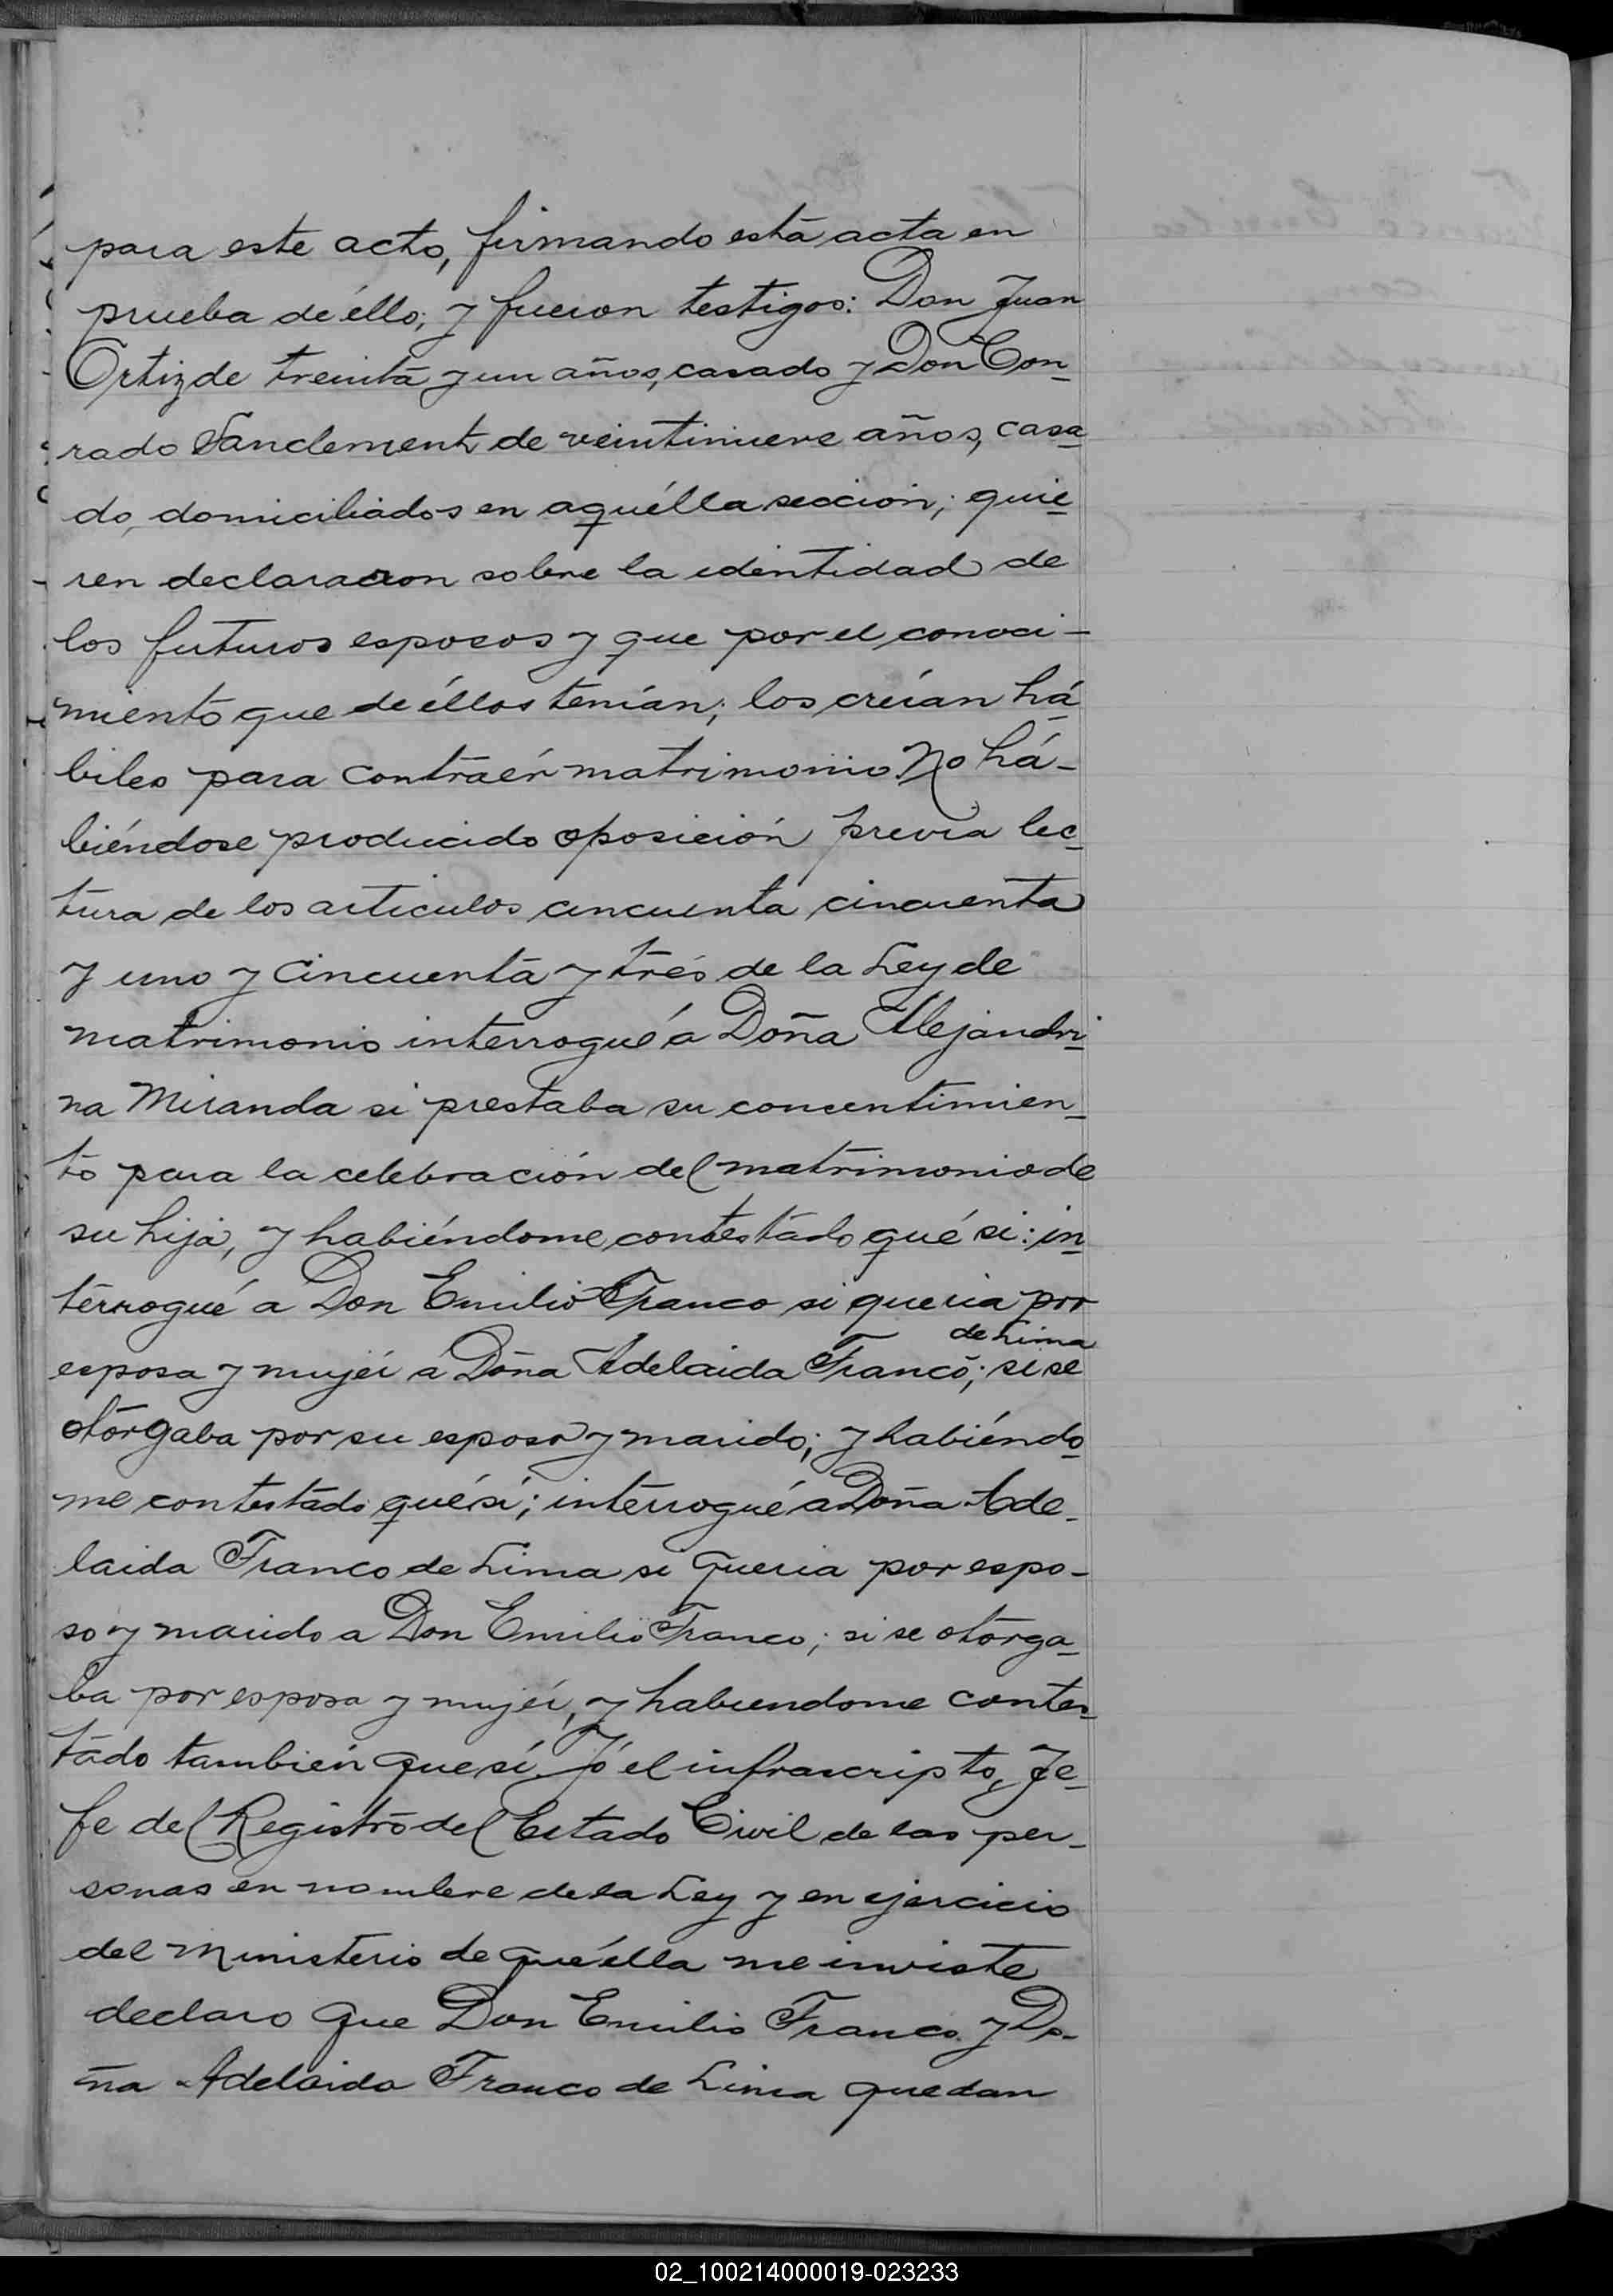 para este acto, firmando esta acta en
prueba de éllo; y fueron testigos: Don Juan
Ortiz de treinta y un años, casado y Don Con-
rado Sanclement de veintinueve años, casa-
do, domiciliados en aquélla sección; quie-
ren declararon sobre la identidad de
los futuros esposos y que por el conoci-
miento que de éllos tenían; los creían há-
biles para contraér matrimonio. No há-
biéndose producido oposición previa lec-
tura de los articulos cincuenta cincuenta
y uno y cincuenta y trés de la Ley de
matrimonio interrogué a Doña Alejandri-
na Miranda si prestaba su consentimien-
to para la celebración del matrimonio de
su hija, y habiéndome contestado qué si: in-
terrogué a Don Emilio Franco si queria por
de Lima
esposa y mujér a Doña Adelaida Franco; si se
otorgaba por su esposo y marido; y habiéndo-
me contestado qué sí; interrogué a Doña Ade-
laida Franco de Lima si queria por espo-
so y marido a Don Emilio Franco; si se otorga-
ba por esposa y mujér, y habiendome contes-
tado también que sí. Yó el infrascripto, Je-
fe del Registro del Estado Civil de las per-
sonas en nombre de la Ley y en ejercicio
del Ministerio de que élla me inviste
declaro que Don Emilio Franco y Do-
ña Adelaida Franco de Lima quedan
02_100214000019-023233